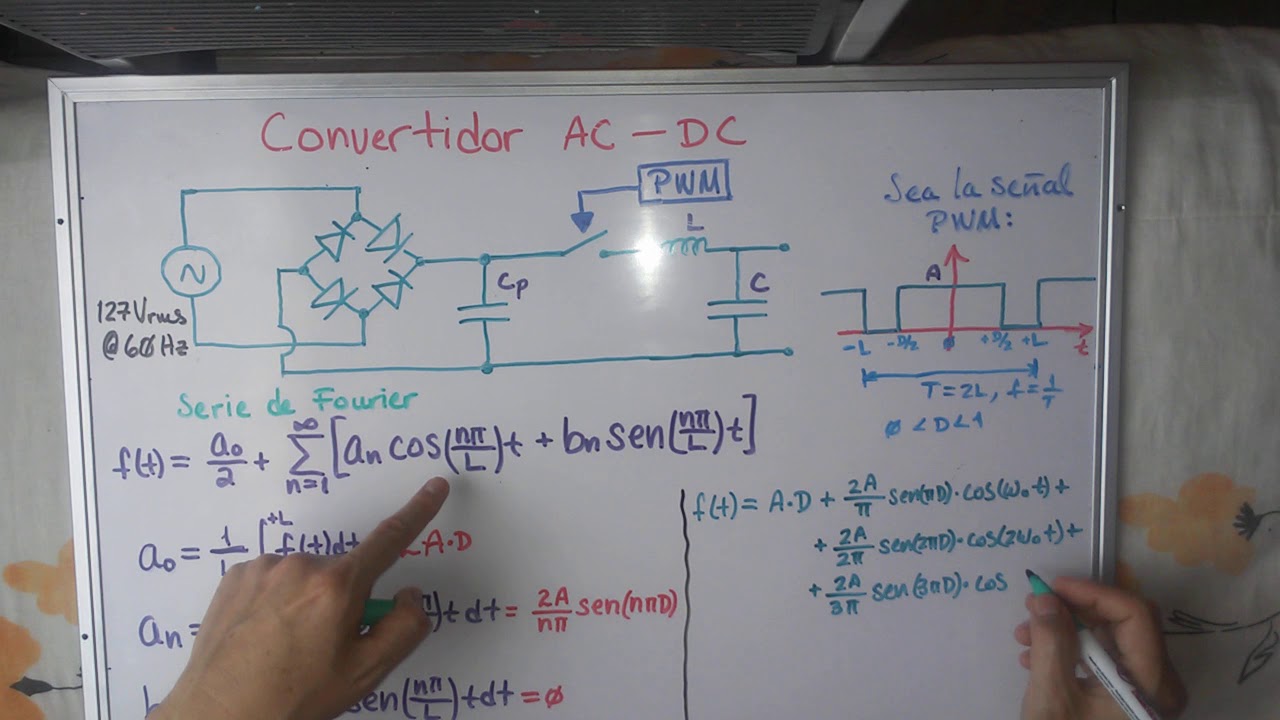 Convertidor AC – DC
PWM
L
Cp
C
127 Vrms
@ 60 Hz
Sea la señal
PWM:
A
-L -D/2 Ø +D/2 +L t
T = 2L, f = 1/T
Ø < D < 1
Serie de Fourier
f(t) = a₀/2 + ∑ₙ₌₁^∞ [aₙ cos(nπ/L)t + bₙ sen(nπ/L)t]
a₀ = ∫^+L f(t)dt A·D
aₙ = t dt = 2A/nπ sen(nπD)
sen(nπ/L)t dt = Ø
f(t) = A·D + 2A/π sen(πD)·cos(ω₀t) +
+ 2A/2π sen(2πD)·cos(2ω₀t) +
+ 2A/3π sen(3πD)·cos